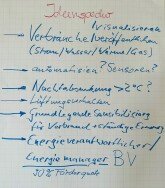 Ideenspeicher
visualisieren
Verbräuche veröffentlichen
(Strom/Wasser/Wärme/Gas)
automatisieren? Sensoren?
Nachtabsenkung >2°C?
Lüftungsverhalten
Grundlegende Sensibilisierung
für Verbrauch
Energieverantwortlicher/
Energiemanager BV
50% Förderquote